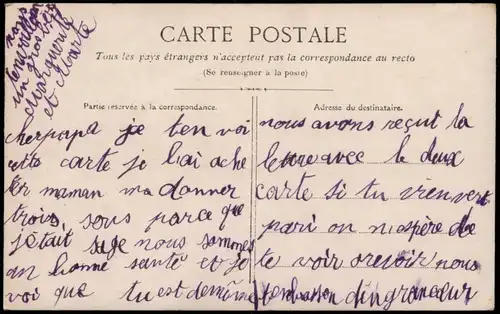 nous
tenvoillon
un gros bijou
Marguerite
et Marte
CARTE POSTALE
Tous les pays étrangers n'acceptent pas la correspondance au recto
(Se renseigner à la poste)
Partie réservée à la correspondance.
cher papa je ten voi
cette carte je lai ache
ter maman ma donner
trois sous parce que
jétait sage nous sommes
an bonne santé et je
voi que tu est de même
Adresse du destinataire.
nous avons reçut la
lettre avec le deux
carte si tu vien vert
pari on nespère de
te voir orevoir nous
tenbrasson din gran ceur